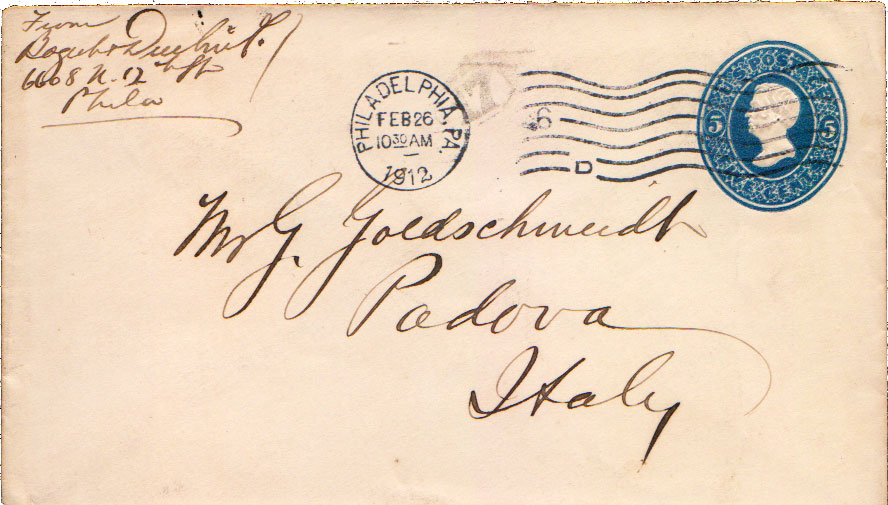 From
6608 N. 12th St
Phila
PHILADELPHIA, PA.
FEB 26
10 30 AM
1912
7
6
D
U.S. POSTAGE
5 5
FIVE CENTS
Mr G. Goldschmidt
Padova
Italy